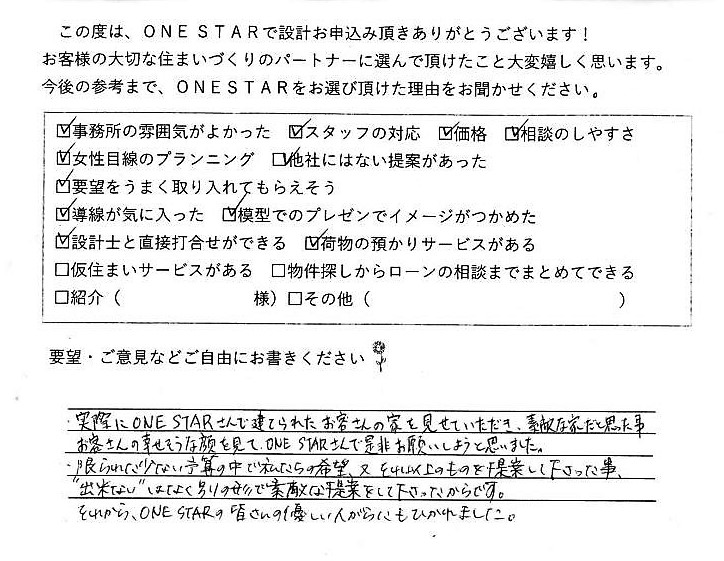 この度は、ＯＮＥＳＴＡＲで設計お申込み頂きありがとうございます！
お客様の大切な住まいづくりのパートナーに選んで頂けたこと大変嬉しく思います。
今後の参考まで、ＯＮＥＳＴＡＲをお選び頂けた理由をお聞かせください。
☑事務所の雰囲気がよかった ☑スタッフの対応 ☑価格 ☑相談のしやすさ
☑女性目線のプランニング ☑他社にはない提案があった
☑要望をうまく取り入れてもらえそう
☑導線が気に入った ☑模型でのプレゼンでイメージがつかめた
☑設計士と直接打合せができる ☑荷物の預かりサービスがある
□仮住まいサービスがある □物件探しからローンの相談までまとめてできる
□紹介（ 様）□その他（ ）
要望・ご意見などご自由にお書きください
・実際にONE STARさんで建てられたお客さんの家を見せていただき、素敵な家だと思った事
お客さんの幸せそうな顔を見て、ONE STARさんで是非お願いしようと思いました。
・限られた少ない予算の中で私たちの希望、又それ以上のものを提案して下さった事、
"出来ない"ではなく別の形で素敵な提案をして下さったからです。
それから、ONE STARの皆さんの優しい人がらにもひかれました。